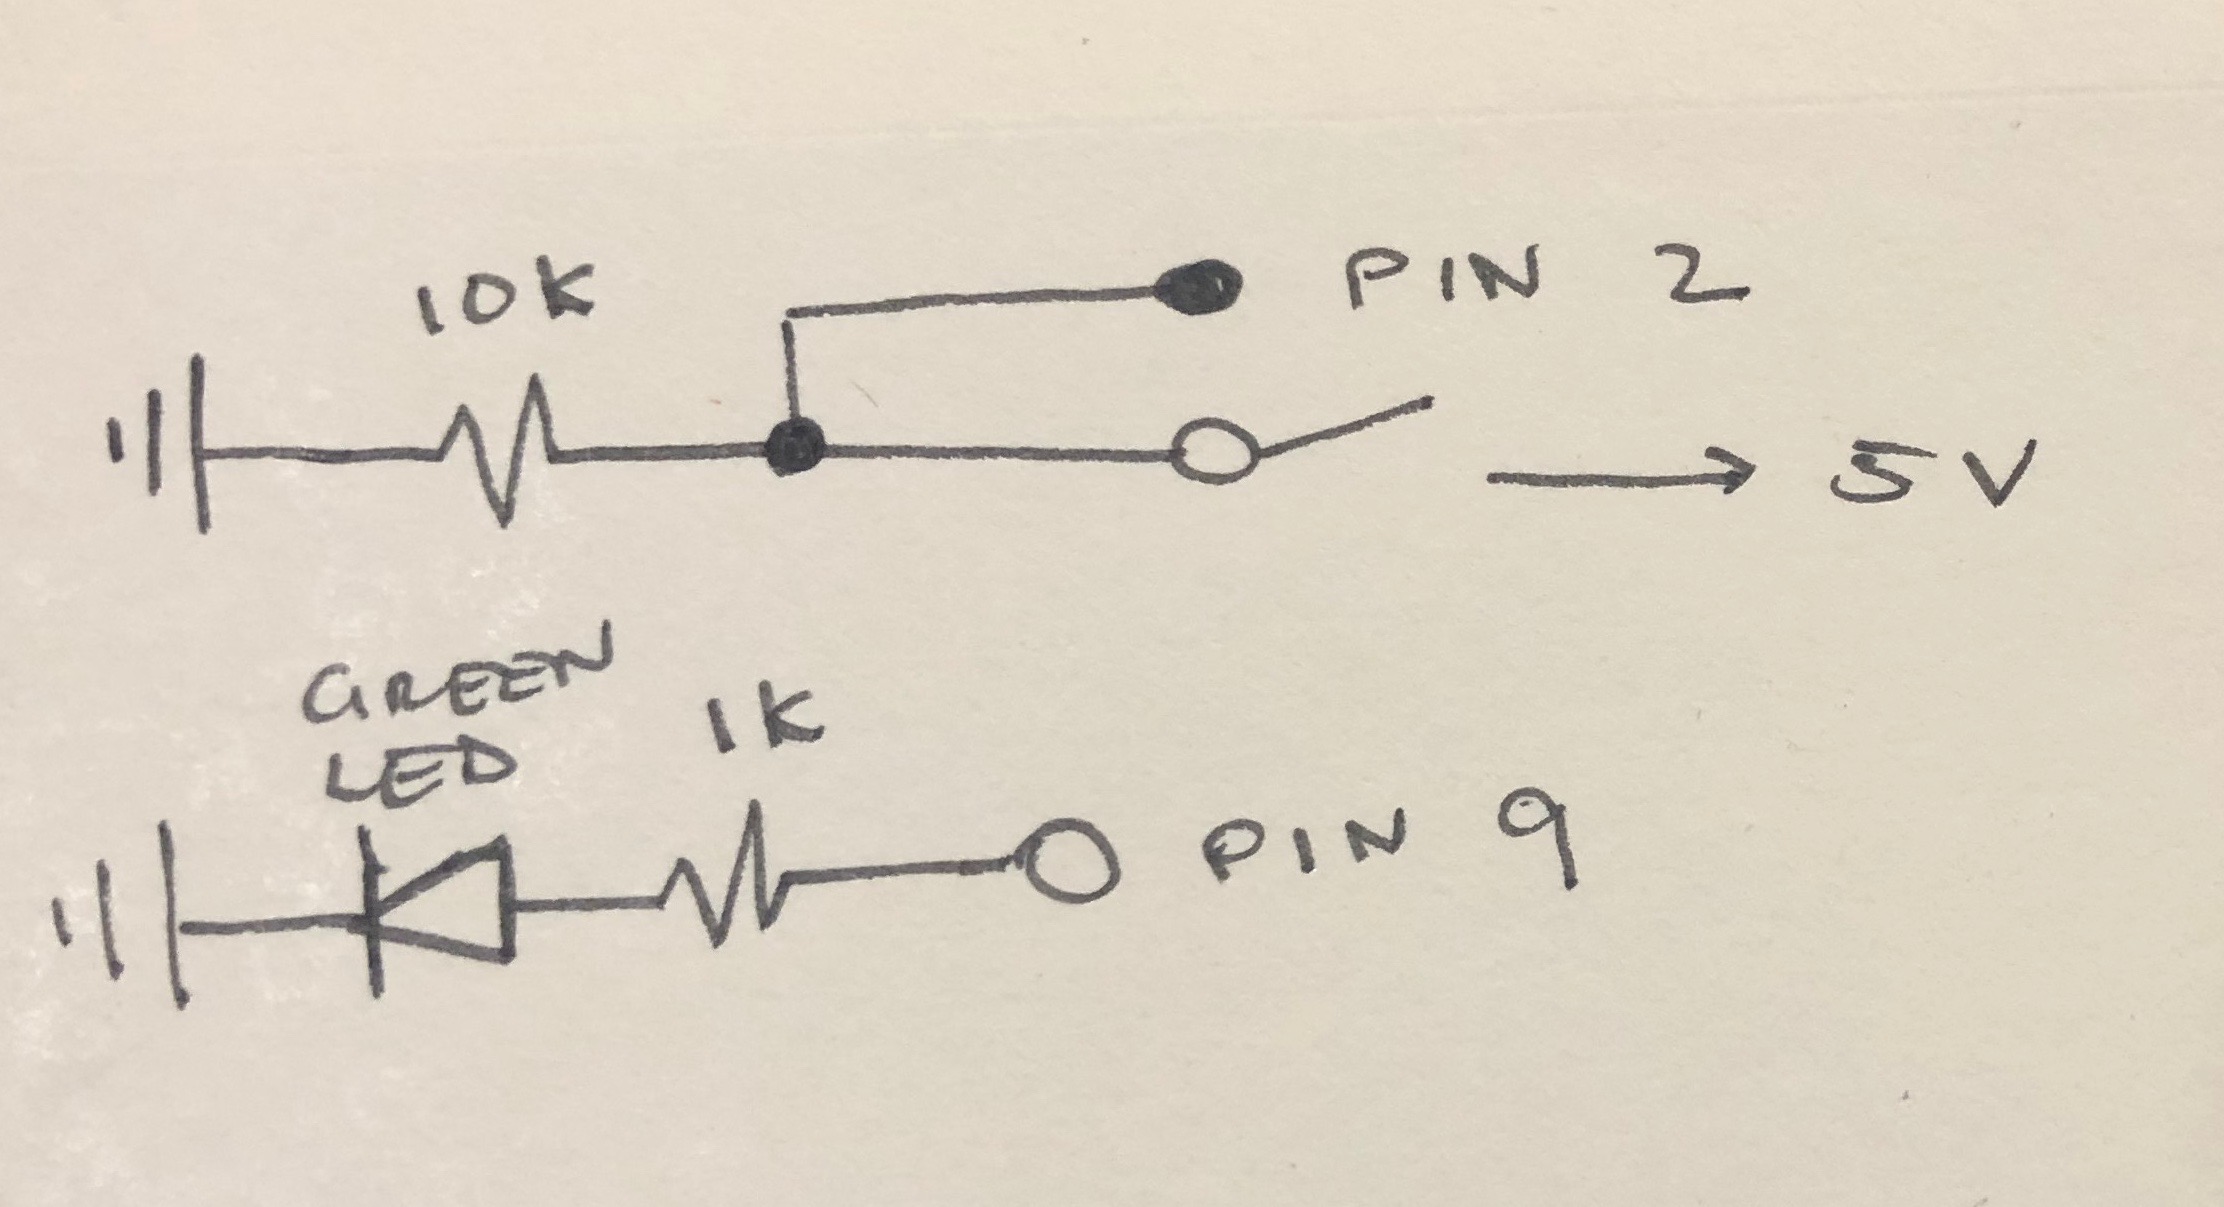 10K
PIN 2
5V
GREEN
LED
1K
PIN 9